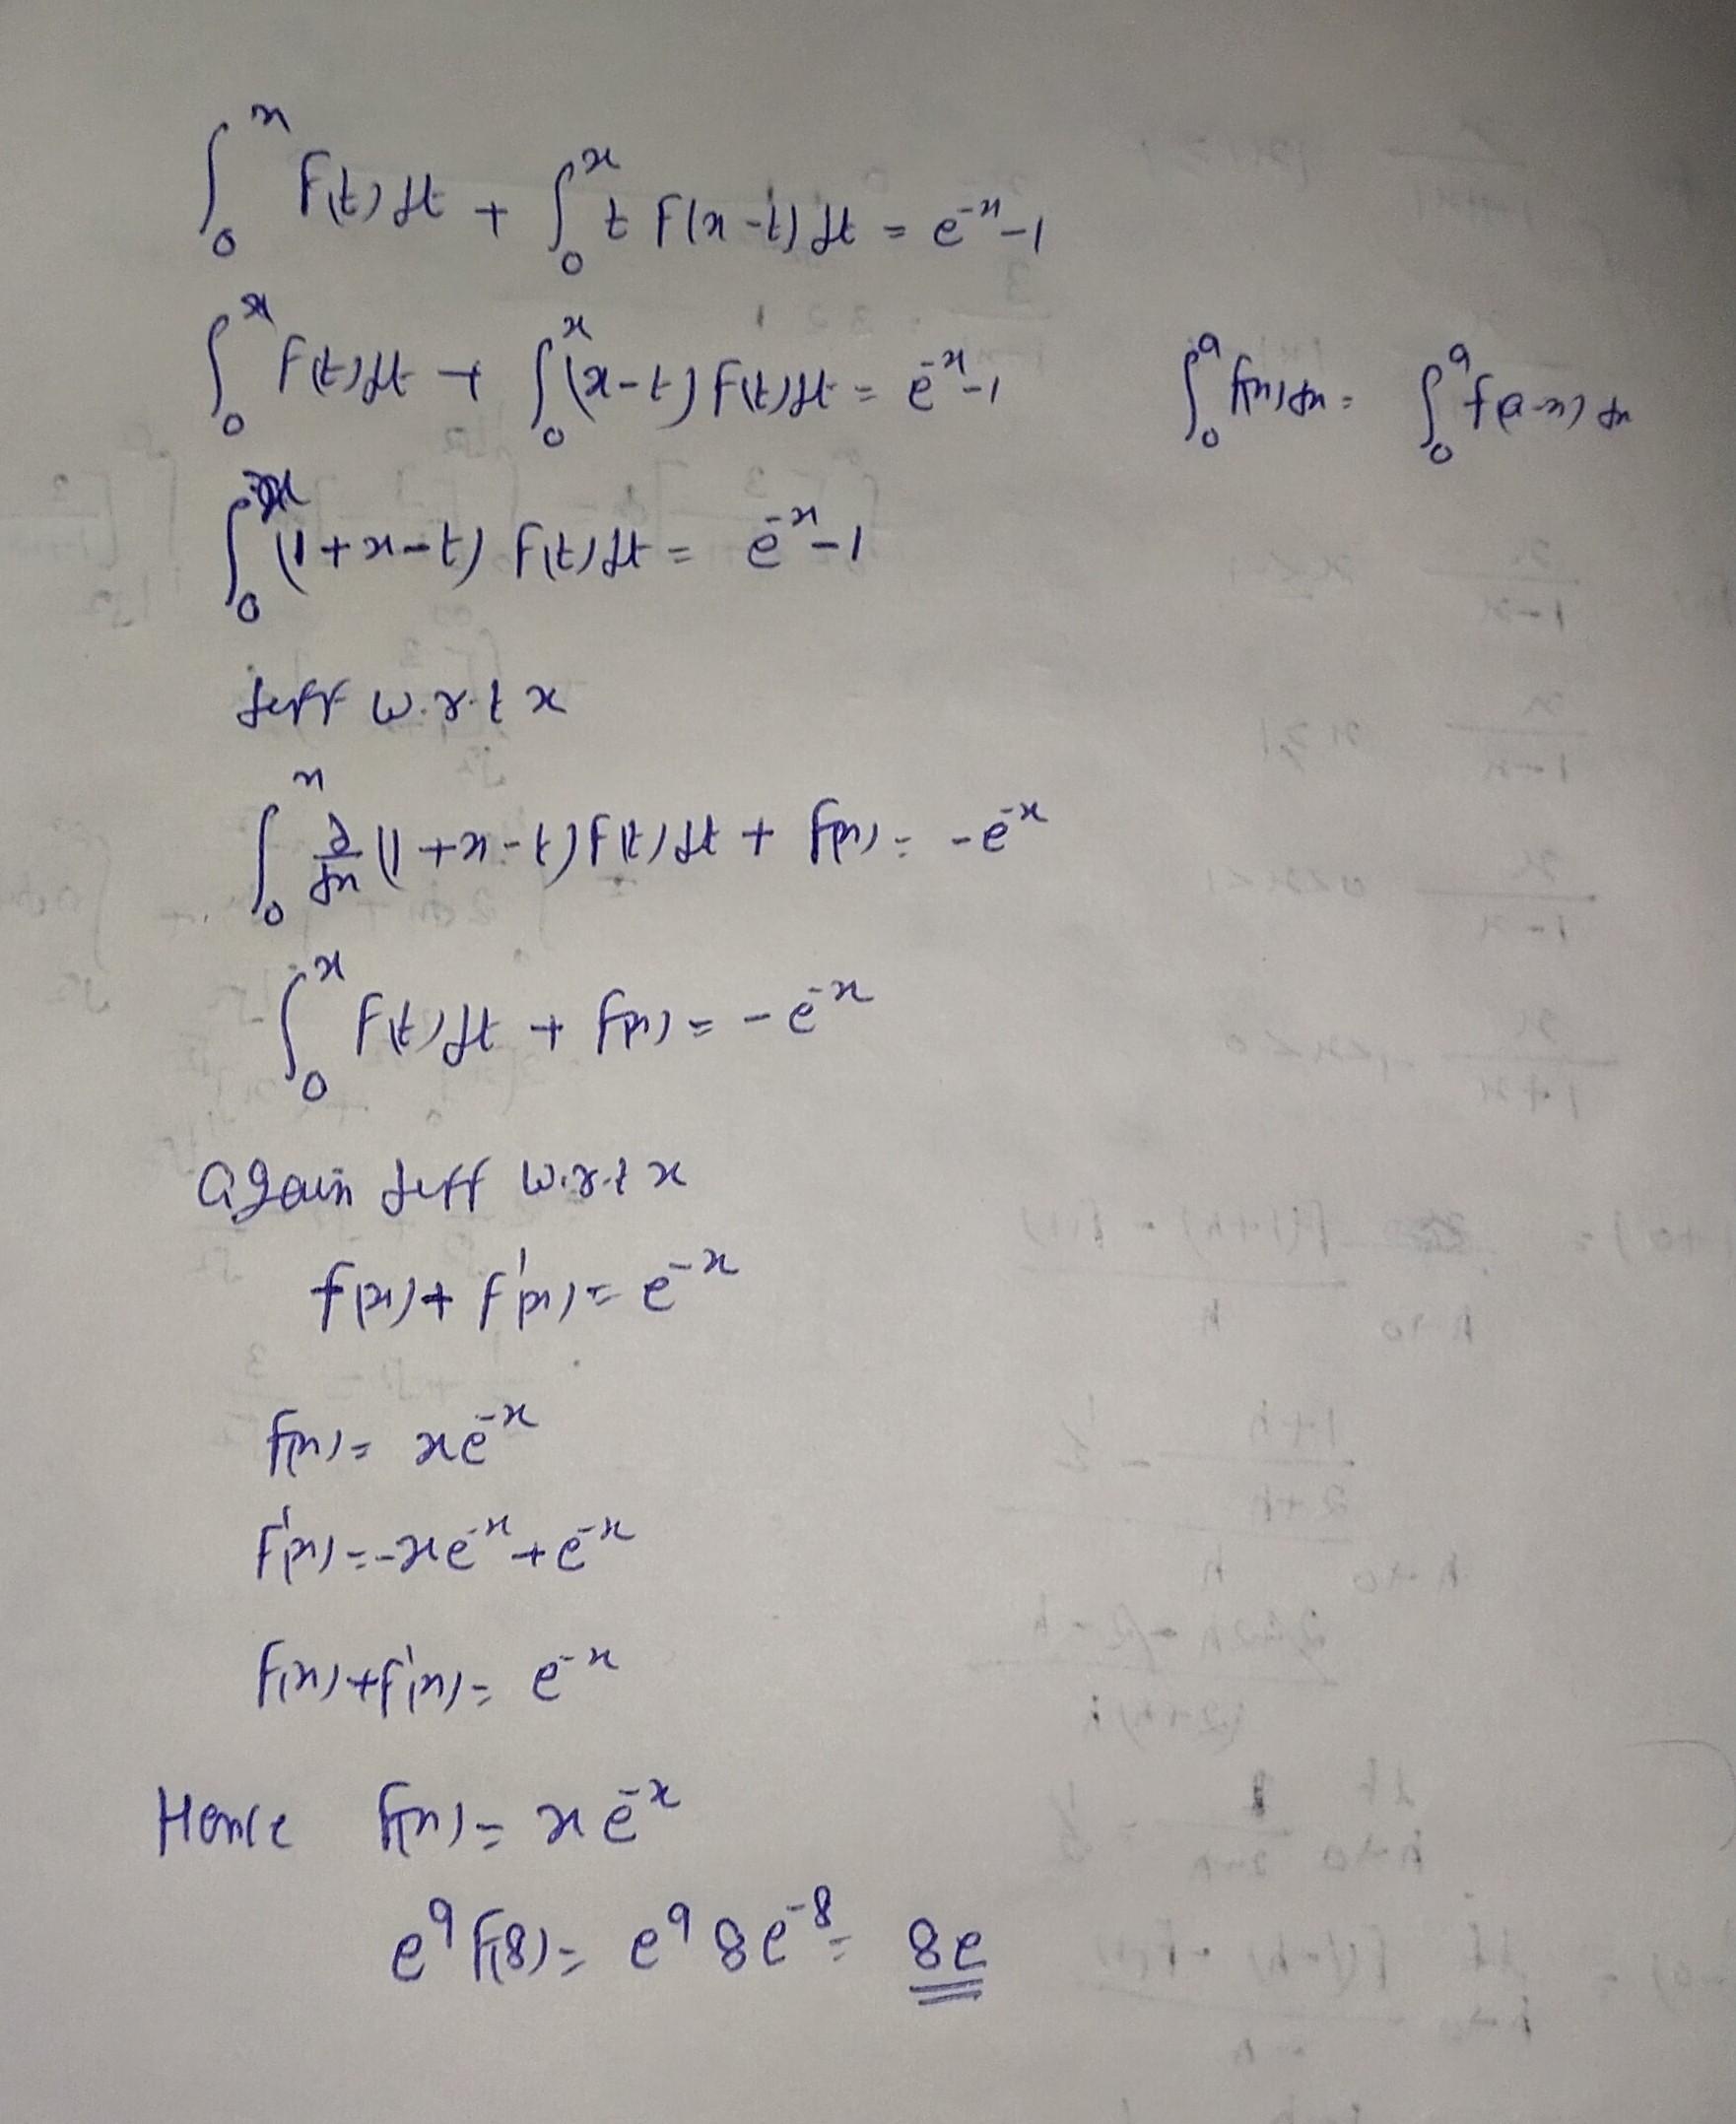 ∫₀ˣ f(t)dt + ∫₀ˣ t f(x-t)dt = e⁻ˣ-1
∫₀ˣ f(t)dt + ∫₀ˣ (x-t) f(t)dt = e⁻ˣ-1 ∫₀ᵃ f(x)dx = ∫₀ᵃ f(a-x)dx
∫₀ˣ (1+x-t) f(t)dt = e⁻ˣ-1
diff w.r.t x
∫₀ˣ ∂/∂x (1+x-t)f(t)dt + f(x) = -e⁻ˣ
∫₀ˣ f(t)dt + f(x) = -e⁻ˣ
Again diff w.r.t x
f(x)+f'(x) = e⁻ˣ
f(x) = xe⁻ˣ
f'(x) = -xe⁻ˣ+e⁻ˣ
f(x)+f'(x) = e⁻ˣ
Hence f(x) = xe⁻ˣ
e⁹ f(8) = e⁹ 8e⁻⁸ = 8e